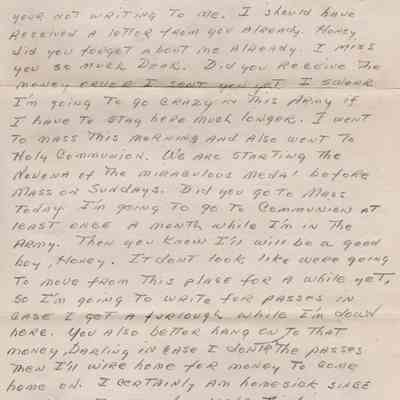 your not writing to me. I should have
received a letter from you already. Honey
did you forget about me already. I miss
you so much Dear. Did you receive the
money order I sent you yet I swear
I'm going to go crazy in this Army if
I have to stay here much longer. I went
to mass this morning and also went to
Holy Communion. We are starting the
Novena of the miraculous medal before
Mass on Sundays. Did you go to Mass
today. I'm going to go to Communion at
least once a month while I'm in the
Army. Then you know I'll will be a good
boy, Honey. It dont look like were going
to move from this place for a while yet,
so I'm going to write for passes in
case I get a furlough while I'm down
here. You also better hang on to that
money, Darling in case I dont the passes
then I'll wire home for money to come
home on. I certainly am homesick since